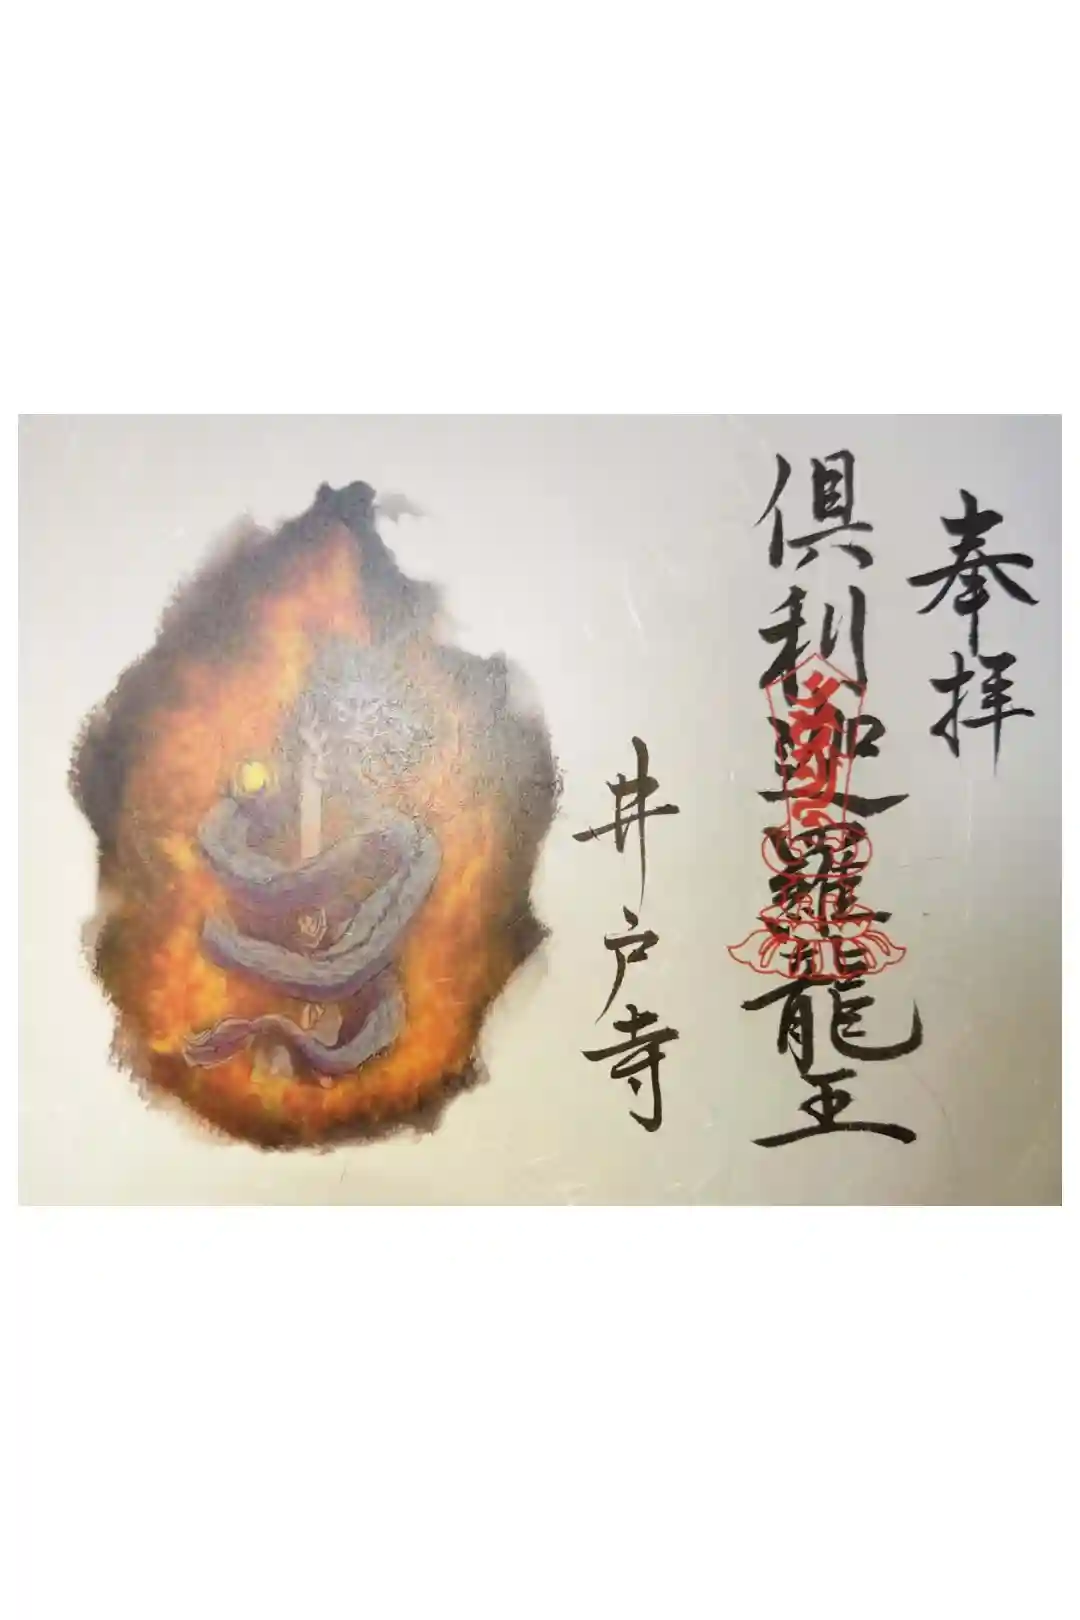 奉拝
倶利迦羅龍王
井戸寺